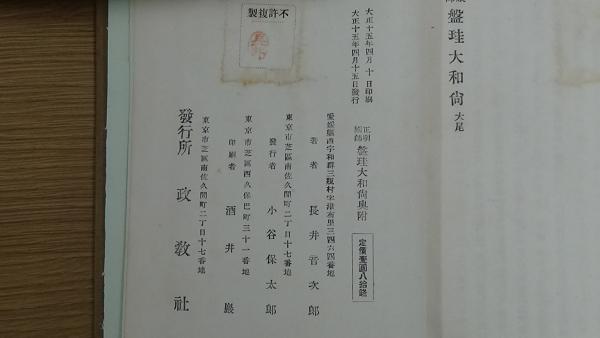 盤珪大和尙 大尾
不許複製
大正十五年四月十日印刷
大正十五年四月十五日發行
正眼國師 盤珪大和尙與附
定價壹圓八拾錢
愛媛縣西宇和郡三瓶村字津布里三四六四番地
著者 長井音次郞
東京市芝區南佐久間町二丁目十七番地
發行者 小谷保太郞
東京市芝區西久保巴町三十一番地
印刷者 酒井巖
東京市芝區南佐久間町二丁目十七番地
發行所 政敎社